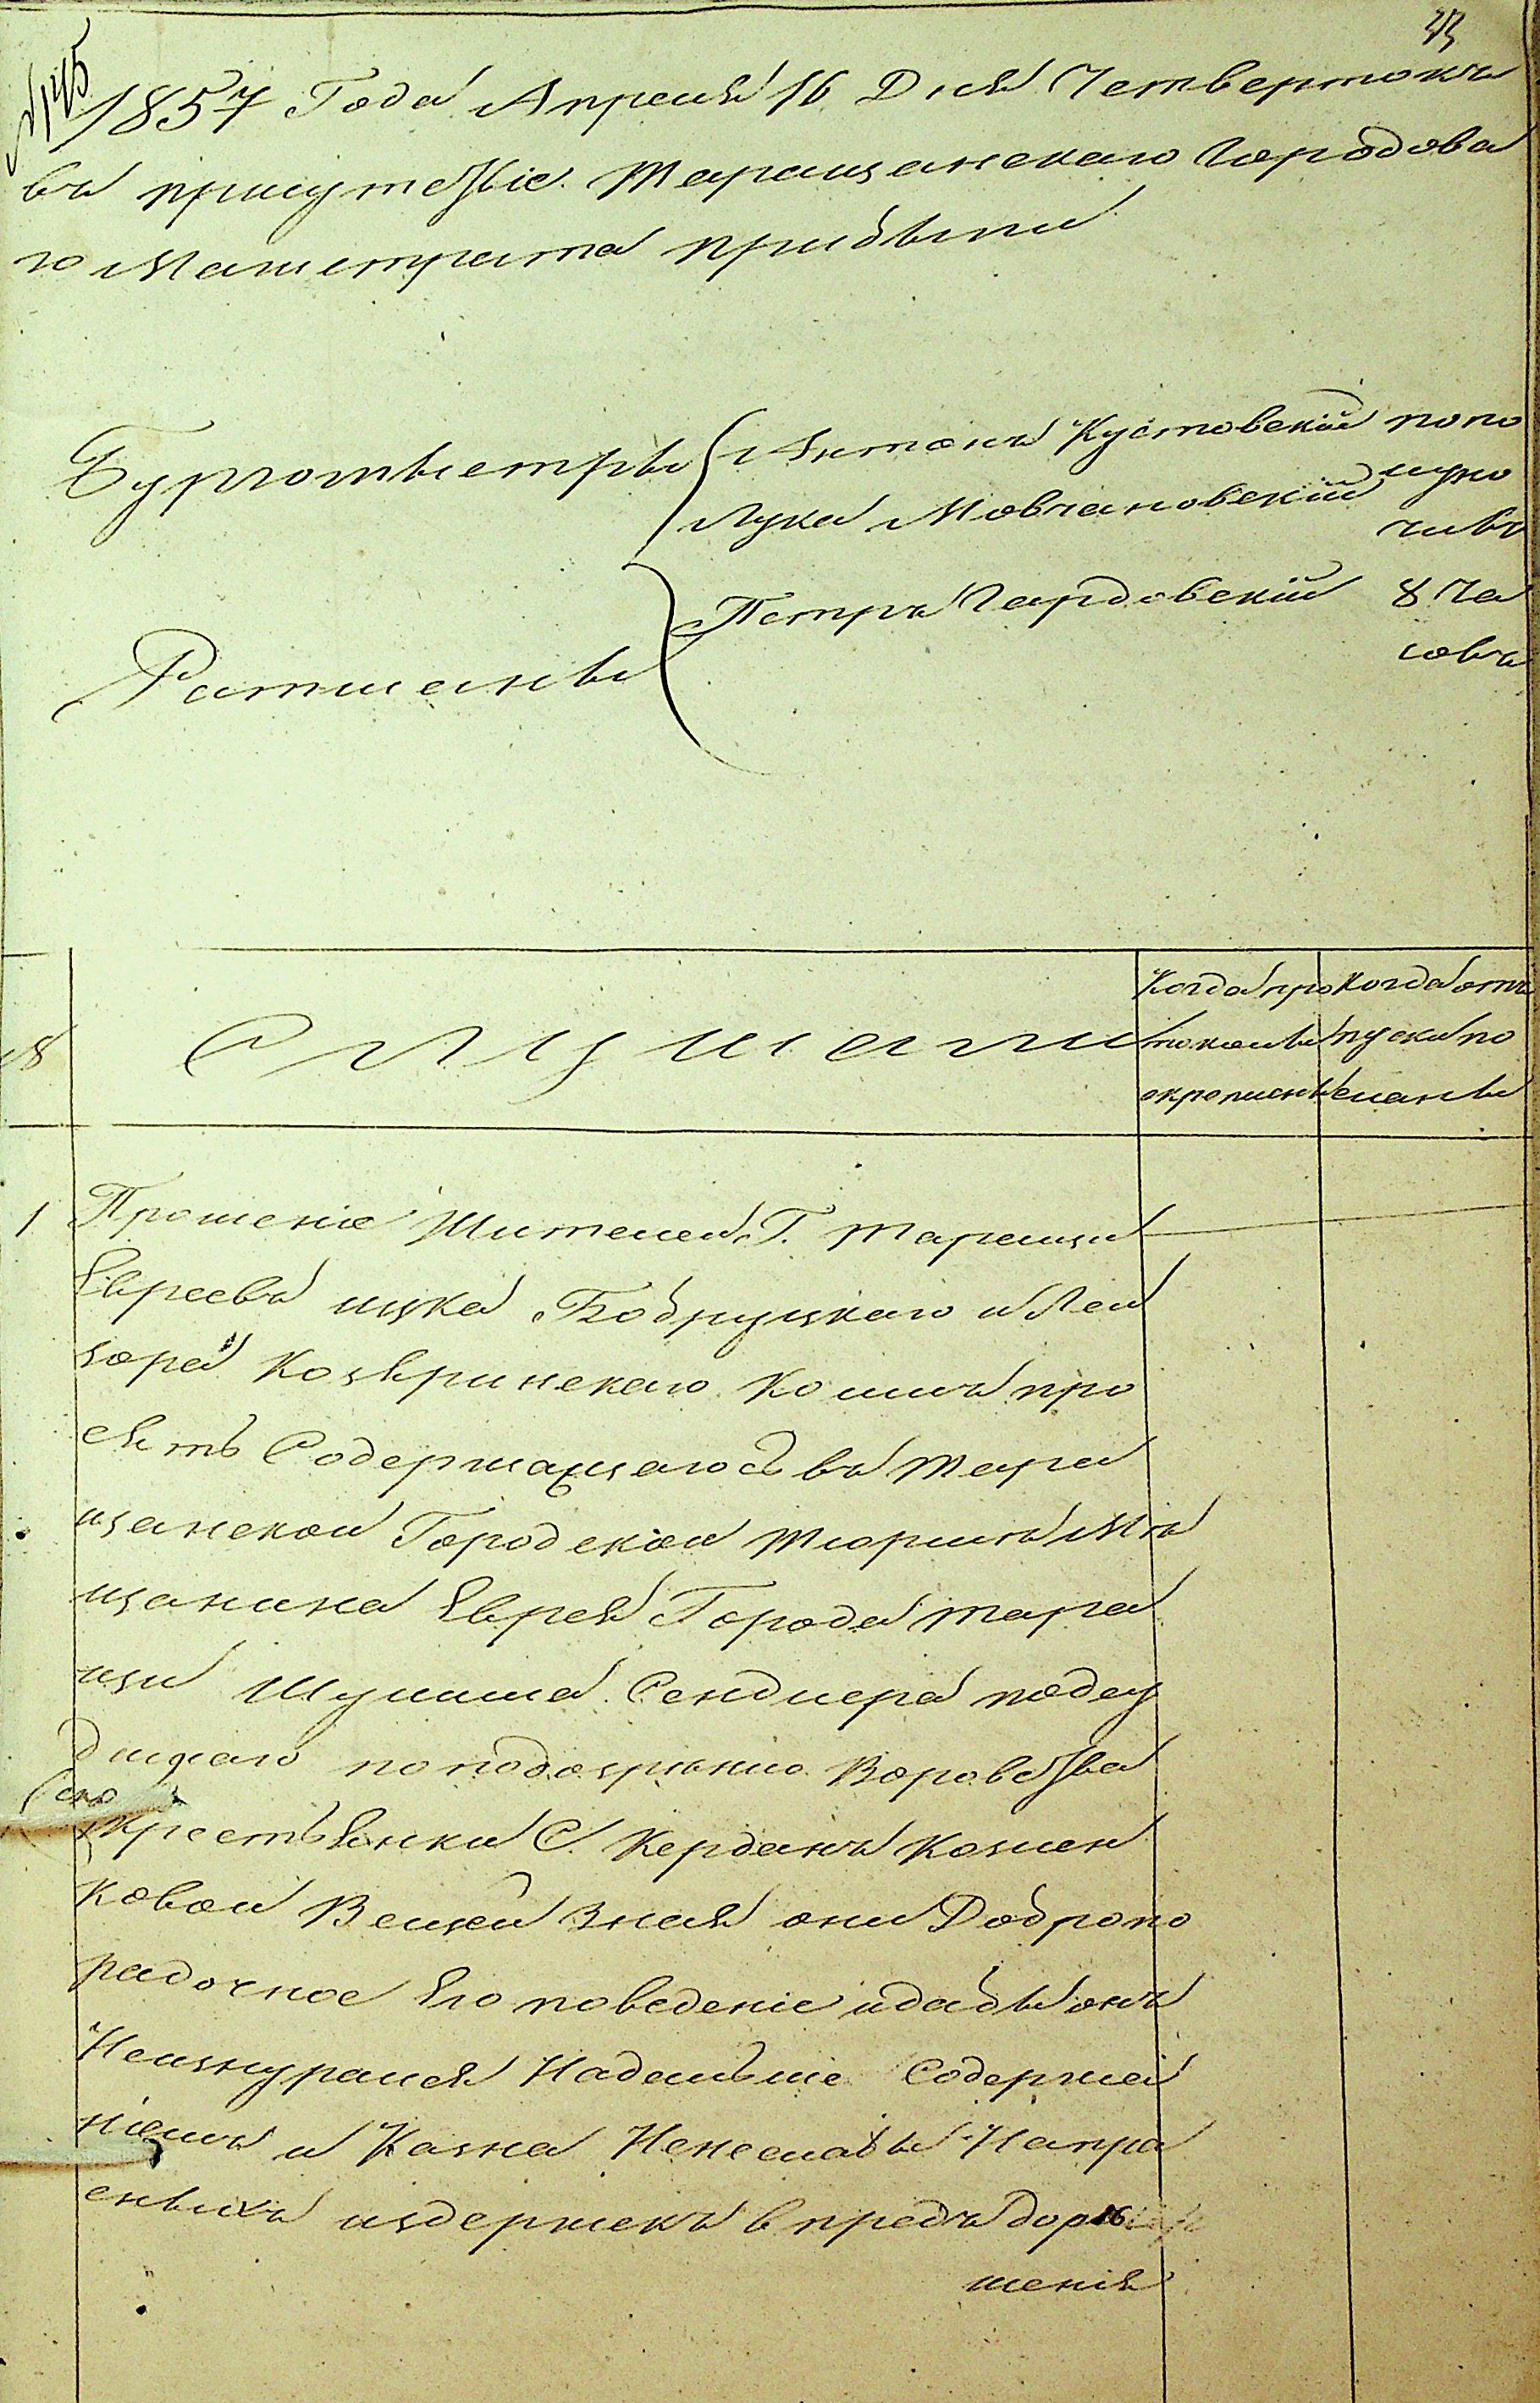 43
№ 45
1857 Года Апреля 16 Дня Четвертокъ
въ присутствіе Таращанскаго Городова
го Магистрата прибыли
Бургомыстры
Антонъ Кустовскій попо
Лука Мовчановскій луно
чивъ
Ратманы
Петръ Гардовскій 8 Ча
совъ
№
Слушали
Когда про
токолы
скреплены
когда отъ
пуски по
сланы
1
Прошеніе Жителей Г. Таращи
Евреевъ Ицка Бобруцкаго и Лей
зора Козвринскаго коимъ про
сятъ Содержащагося въ Тара
щанской Городской Тюрмѣ Мѣ
щанина Еврея Города Тара
щи Шулима Сендлера подсу
димаго по подозрѣнию Воровства
крестьянки С. Кердакъ
ковой Вещей Зная они Добропо
радочное Его поведеніе и дабы онъ
Неизнурался Надальше Содержа
ніемъ и Казна Ненеслабы Напра
сныхъ издержекъ впредъ до
шенія